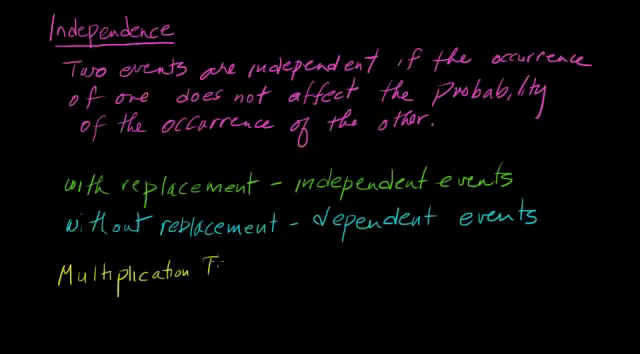 Independence
Two events are independent if the occurrence
of one does not affect the probability
of the occurrence of the other.
with replacement - independent events
without replacement - dependent events
Multiplication